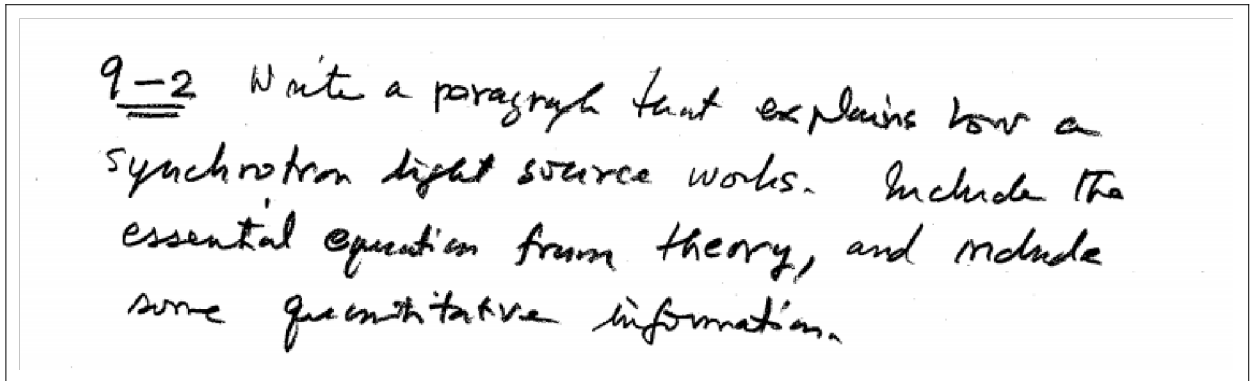 9-2 Write a paragraph that explains how a
synchrotron light source works. Include the
essential equation from theory, and include
some quantitative information.